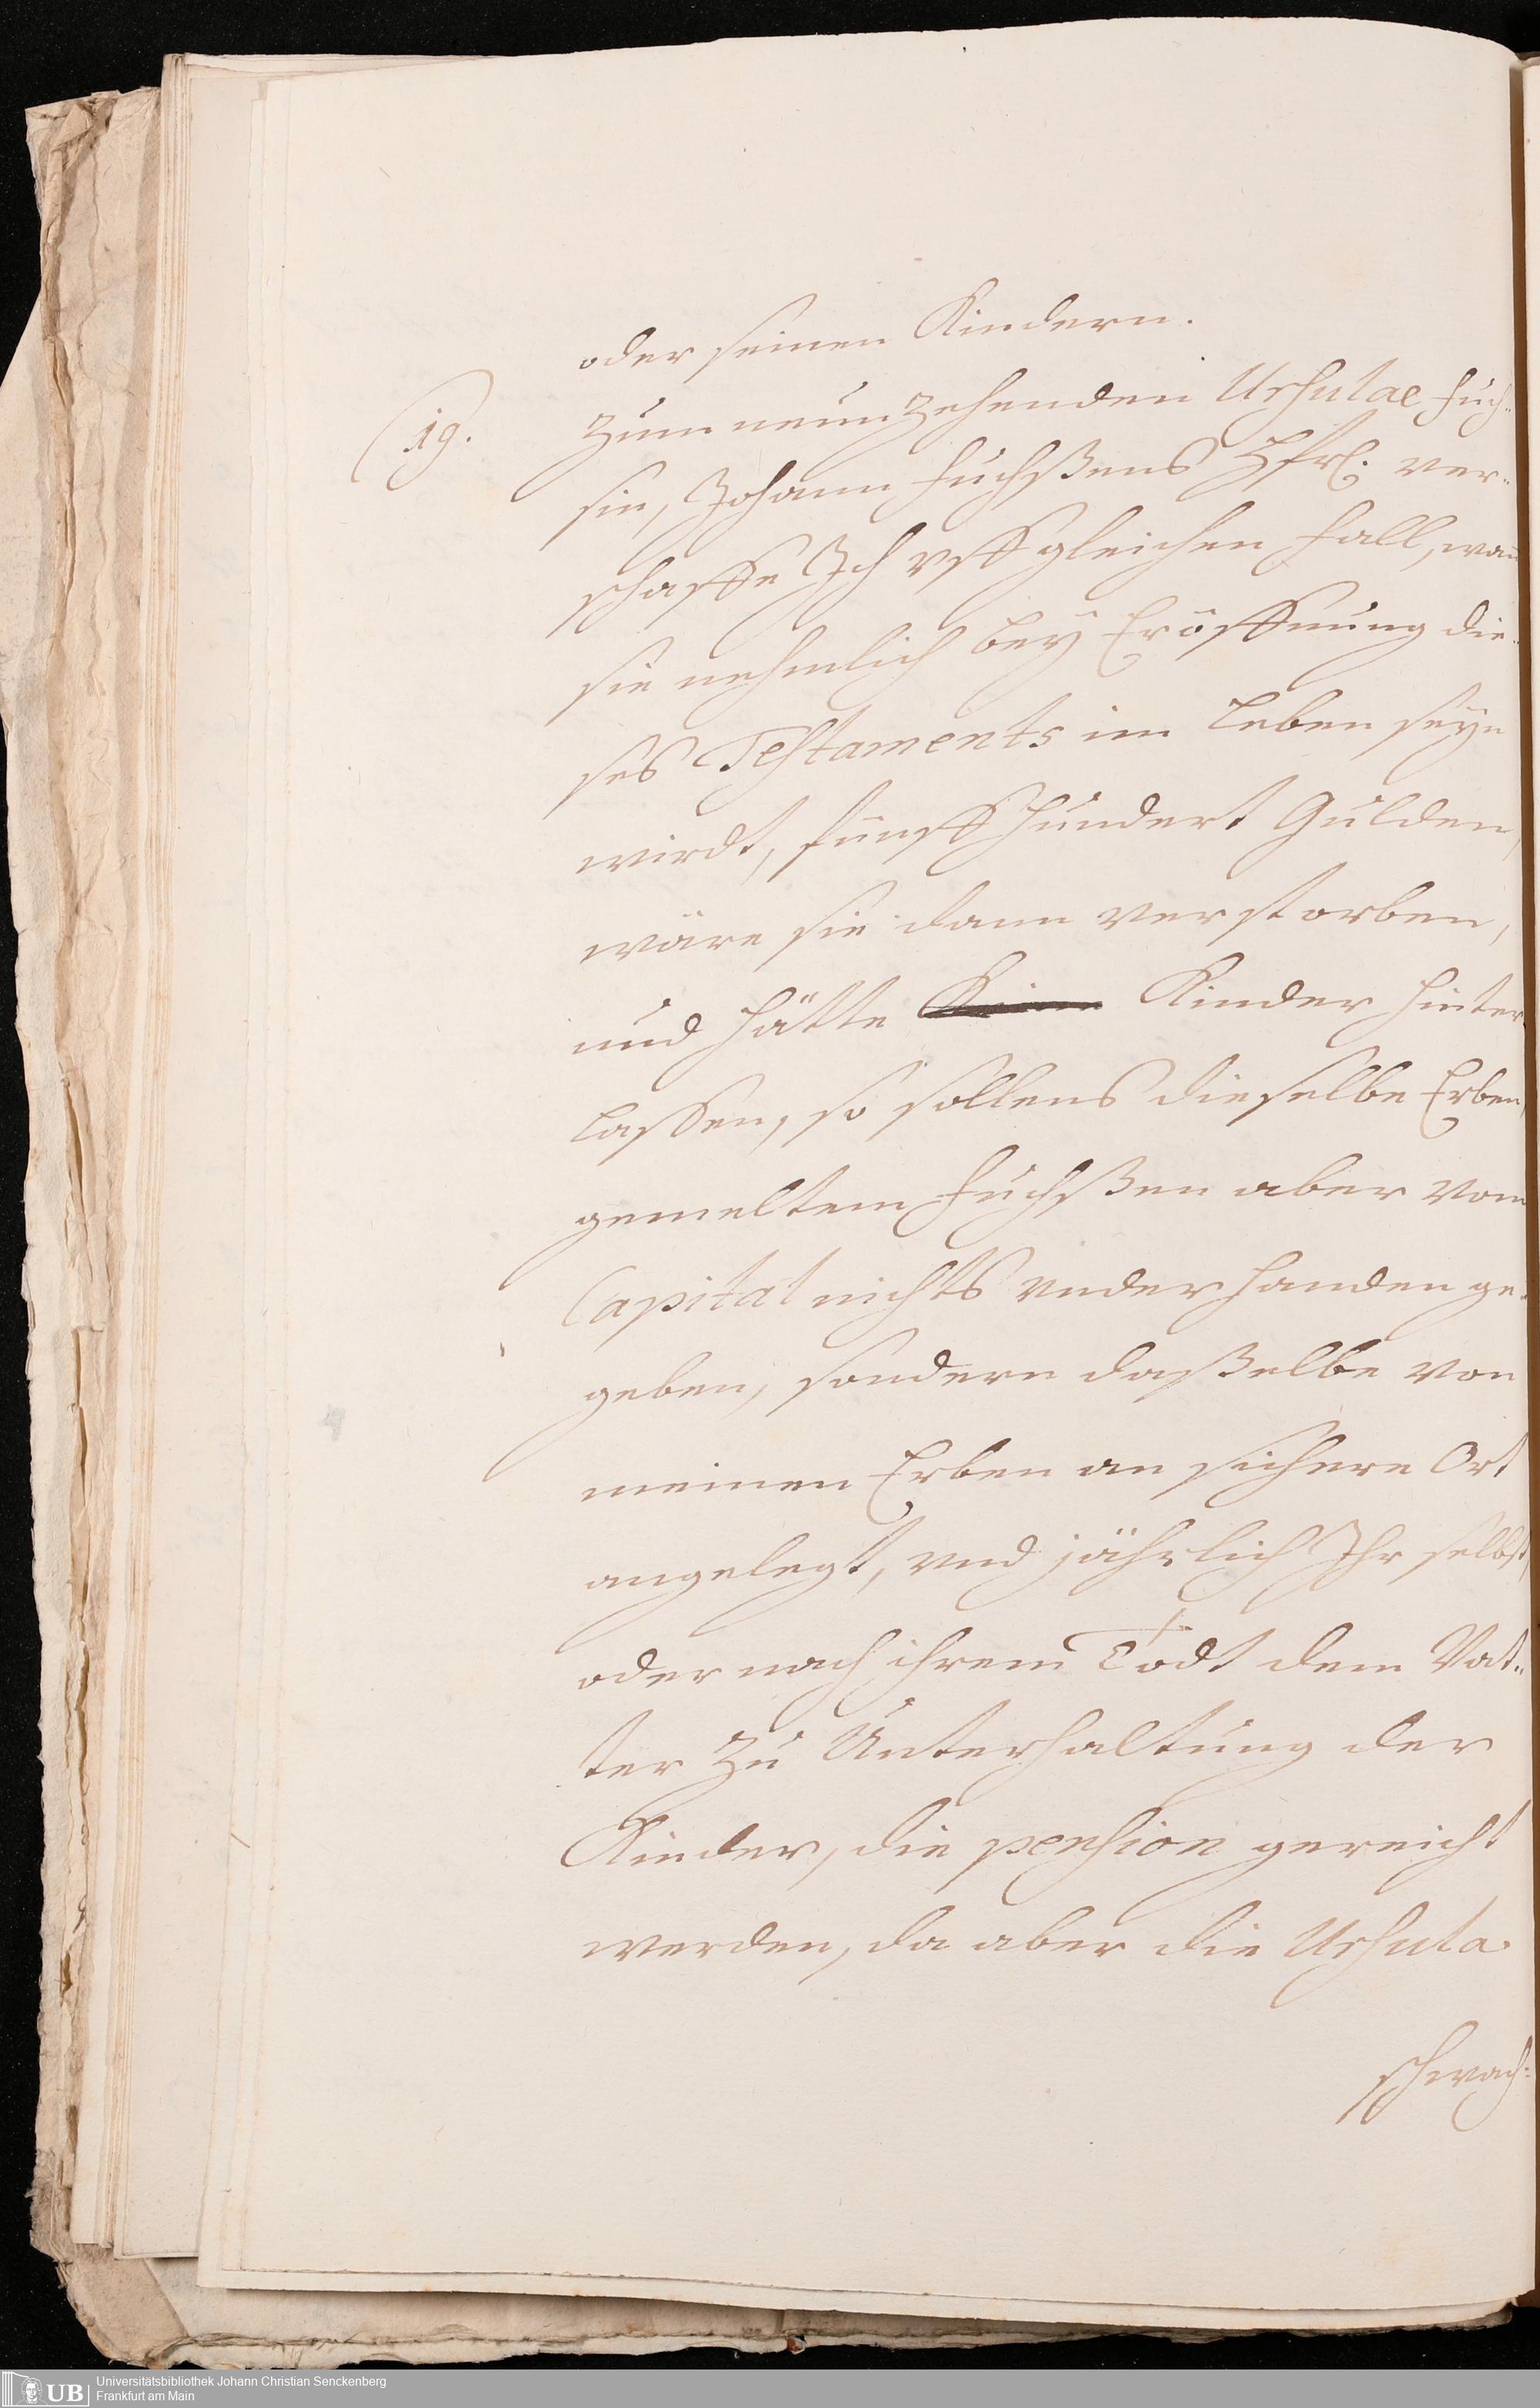 oder seinen Kindern.
19. Zum neunzehenden Ursulae Fuch¬
sin, Johann Fuchßens ver¬
schaffe Ich vff gleichen fall, wan̄
sie nehmlich beÿ Eröffnung die¬
ses Testaments im Leben seyn
wirdt, fünff Hundert Gulden,
wäre sie dann verstorben,
und hätte Kinder hinter
lassen, so sollens dieselbe Erben,
gemeltem Fuchßen aber vom
Capital nichts vnderhanden ge¬
geben, sondern daßelbe von
meinen Erben an sichere Ort
angelegt, vnd jährlich Ihr selbst,
oder nach ihrem Todt dem Vat¬
ter zu Unterhaltung der
Kinder, die pension gereicht
werden, da aber die Ursula
schwach¬
UB Universitätsbibliothek Johann Christian Senckenberg
Frankfurt am Main